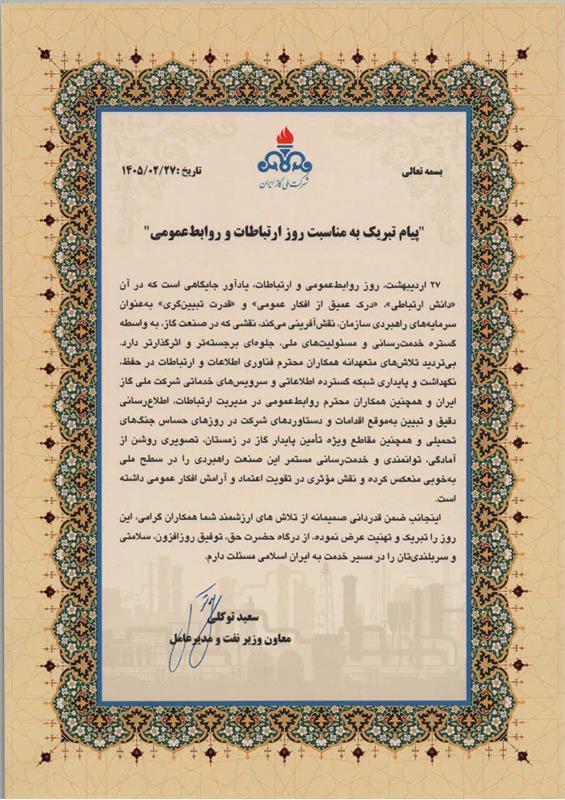 بسمه تعالی
تاریخ :۱۴۰۵/۰۲/۲۷
شرکت ملی گاز ایران
"پیام تبریک به مناسبت روز ارتباطات و روابط‌عمومی"
۲۷ اردیبهشت، روز روابط‌عمومی و ارتباطات، یادآور جایگاهی است که در آن
«دانش ارتباطی»، «درک عمیق از افکار عمومی» و «قدرت تبیین‌گری» به‌عنوان
سرمایه‌های راهبردی سازمان، نقش‌آفرینی می‌کند، نقشی که در صنعت گاز، به واسطه
گستره خدمت‌رسانی و مسئولیت‌های ملی، جلوه‌ای برجسته‌تر و اثرگذارتر دارد.
بی‌تردید تلاش‌های متعهدانه همکاران محترم فناوری اطلاعات و ارتباطات در حفظ،
نگهداشت و پایداری شبکه گسترده اطلاعاتی و سرویس‌های خدماتی شرکت ملی گاز
ایران و همچنین همکاران محترم روابط‌عمومی در مدیریت ارتباطات، اطلاع‌رسانی
دقیق و تبیین به‌موقع اقدامات و دستاوردهای شرکت در روزهای حساس جنگ‌های
تحمیلی و همچنین مقاطع ویژه تأمین پایدار گاز در زمستان، تصویری روشن از
آمادگی، توانمندی و خدمت‌رسانی مستمر این صنعت راهبردی را در سطح ملی
به‌خوبی منعکس کرده و نقش مؤثری در تقویت اعتماد و آرامش افکار عمومی داشته
است.
اینجانب ضمن قدردانی صمیمانه از تلاش های ارزشمند شما همکاران گرامی، این
روز را تبریک و تهنیت عرض نموده، از درگاه حضرت حق، توفیق روزافزون، سلامتی
و سربلندی‌تان را در مسیر خدمت به ایران اسلامی مسئلت دارم.
سعید توکلی
معاون وزیر نفت و مدیرعامل